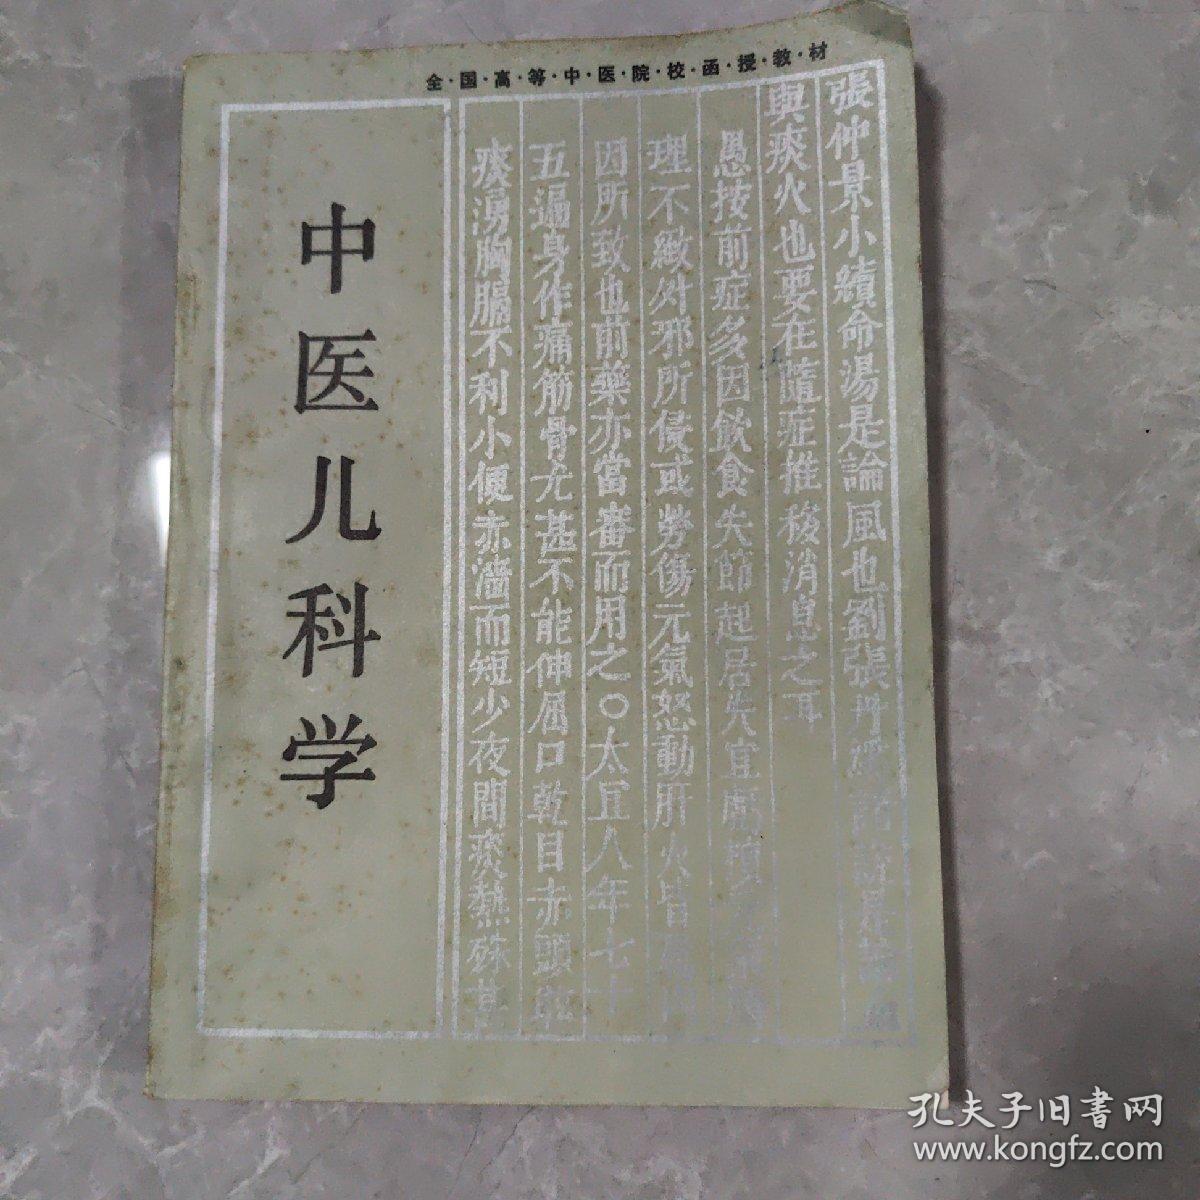 全·国·高·等·中·医·院·校·函·授·教·材
中医儿科学
張仲景小續命湯是論風也劉張丹溪
與痰火也要在隨症推移消息之耳
愚按前症多因飲食失節起居失宜
理不緻外邪所侵或勞傷元氣怒動肝火皆
因所致也前藥亦當審而用之○太宜人年七十
五遍身作痛筋骨尤甚不能伸屈口乾目赤頭
痰湧胸膈不利小便赤澀而短少夜間痰熱殊甚
孔夫子旧书网
www.kongfz.com